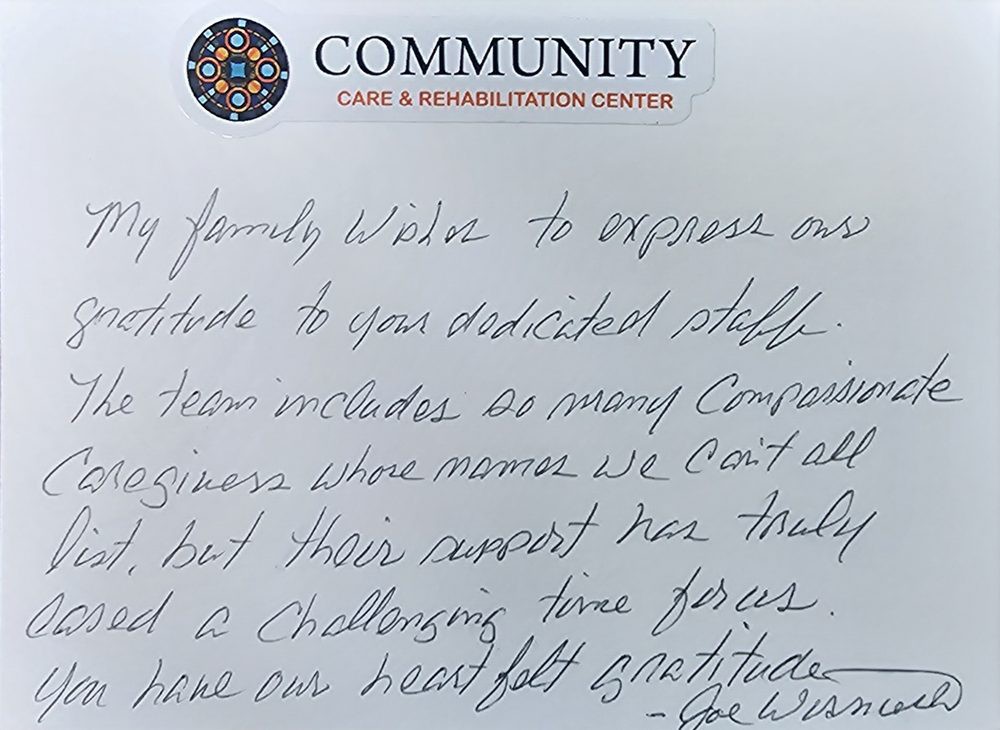 COMMUNITY
CARE & REHABILITATION CENTER
My family wishes to express our
gratitude to your dedicated staff.
The team includes so many Compassionate
Caregivers whose names we can't all
list, but their support has truly
eased a challenging time for us.
You have our heartfelt gratitude
- Joe